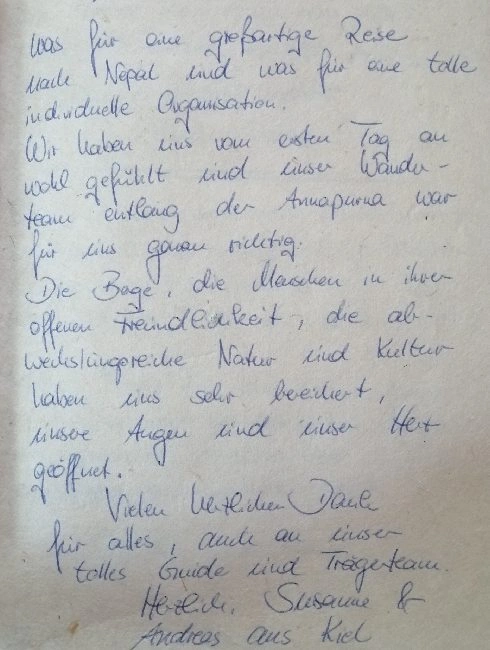 Was für eine großartige Reise
nach Nepal und was für eine tolle
individuelle Organisation.
Wir haben uns vom ersten Tag an
wohl gefühlt und unser Wander-
team entlang der Annapurna war
für uns genau richtig.
Die Berge, die Menschen in ihrer
offenen Freundlichkeit, die ab-
wechslungsreiche Natur und Kultur
haben uns sehr bereichert,
unsere Augen und unser Herz
geöffnet.
Vielen herzlichen Dank
für alles, auch an unser
tolles Guide und Trägerteam.
Herzlich, Susanne &
Andreas aus Kiel